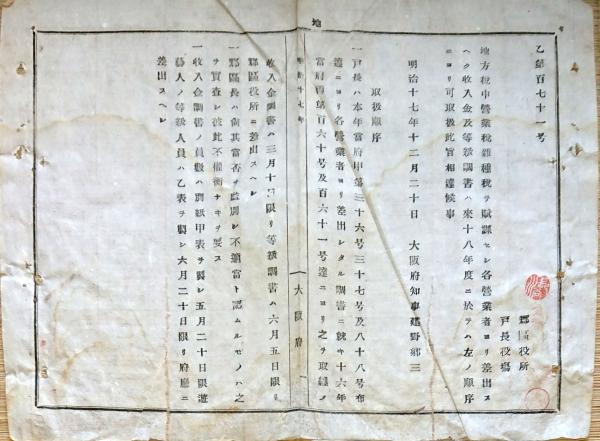 地
乙第百七十一号
郡區役所
戸長役場
地方税中營業税雜種税ヲ賦課セシ各營業者ヨリ差出ス
ヘク收入金及等級調書ハ來十八年度ニ於テハ左ノ順序
ニヨリ可取扱此旨相達候事
明治十七年十二月二十日 大阪府知事建野郷三
取扱順序
一戸長ハ本年當府甲第三十六号三十七号及八十八号布
達ニヨリ各營業者ヨリ差出シタル調書ニ就キ十六年
當府丙第百六十号及百六十一号達ニヨリ之ヲ取纒メ
明治十七年
大阪府
收入金調書ハ三月十日限リ等級調書ハ六月五日限リ
郡區役所ニ差出スヘシ
一郡區長ハ尚其當否ヲ監別シ不適當ト認ムルモノハ之
ヲ實査シ彼此不權衡ナキヲ要ス
一收入金調書ノ員數ハ別紙甲表ヲ製シ五月二十日限遊
藝人ノ等級人員ハ乙表ヲ製シ六月二十日限リ府廳ニ
差出スヘシ